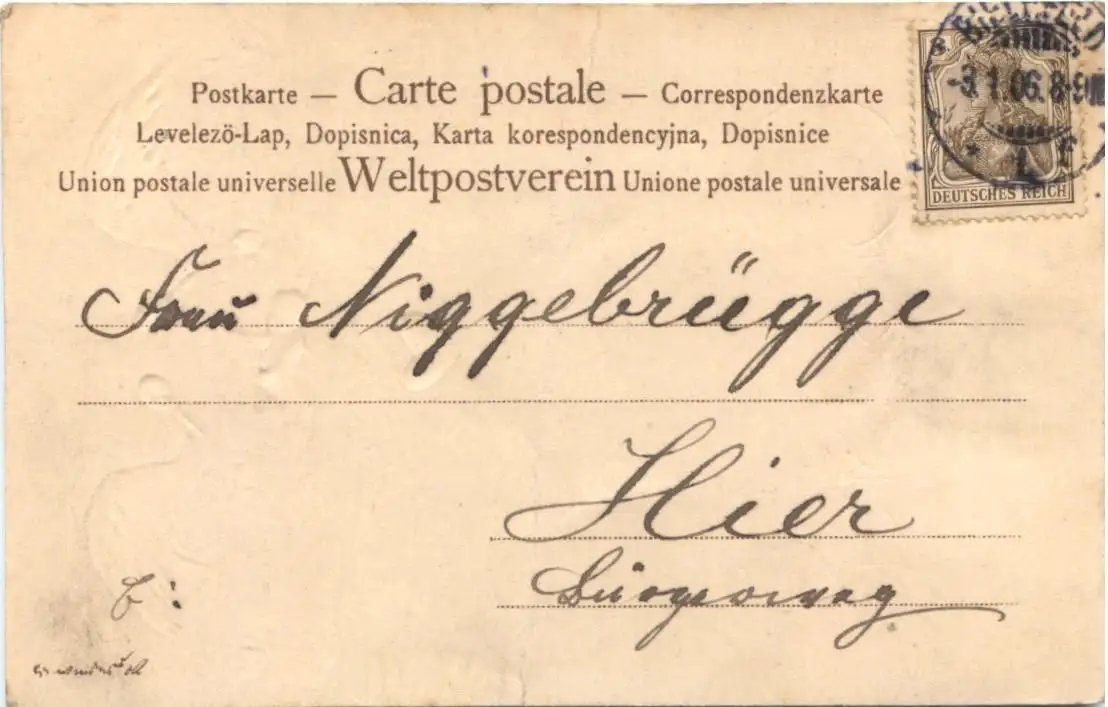 Postkarte — Carte postale — Correspondenzkarte
Levelezö-Lap, Dopisnica, Karta korespondencyjna, Dopisnice
Union postale universelle Weltpostverein Unione postale universale
-3.1.06.8-9
DEUTSCHES REICH
Frau Niggebrügge
Hier
Bürgerweg